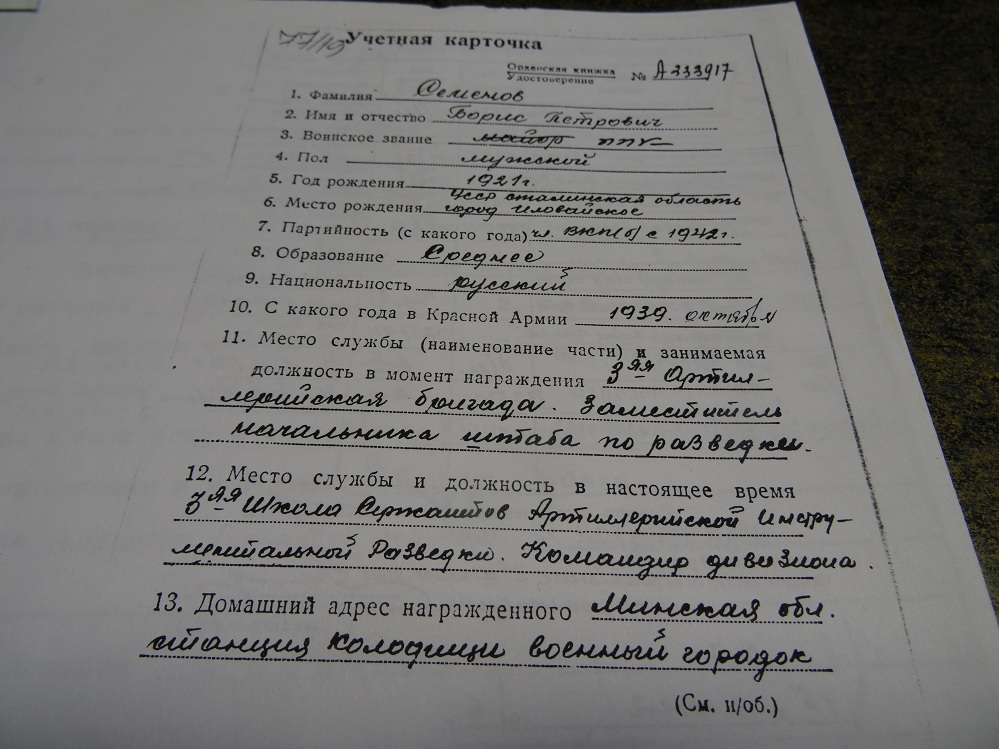 77/19 Учетная карточка
Орденская книжка
Удостоверение № А 333917
1. Фамилия Семенов
2. Имя и отчество Борис Петрович
3. Воинское звание майор ппк
4. Пол мужской
5. Год рождения 1921г.
6. Место рождения Усср сталинская область
город Иловайское
7. Партийность (с какого года) чл. ВКП(б) с 1942г.
8. Образование Среднее
9. Национальность русский
10. С какого года в Красной Армии 1939. октября
11. Место службы (наименование части) и занимаемая
должность в момент награждения 3яя Артил-
лерийская бригада. Заместитель
начальника штаба по разведки.
12. Место службы и должность в настоящее время
3яя Школа Сержантов Артиллерийской Инстру-
ментальной Разведки. Командир дивизиона.
13. Домашний адрес награжденного Минская обл.
станция Колодищи военный городок
(См. н/об.)